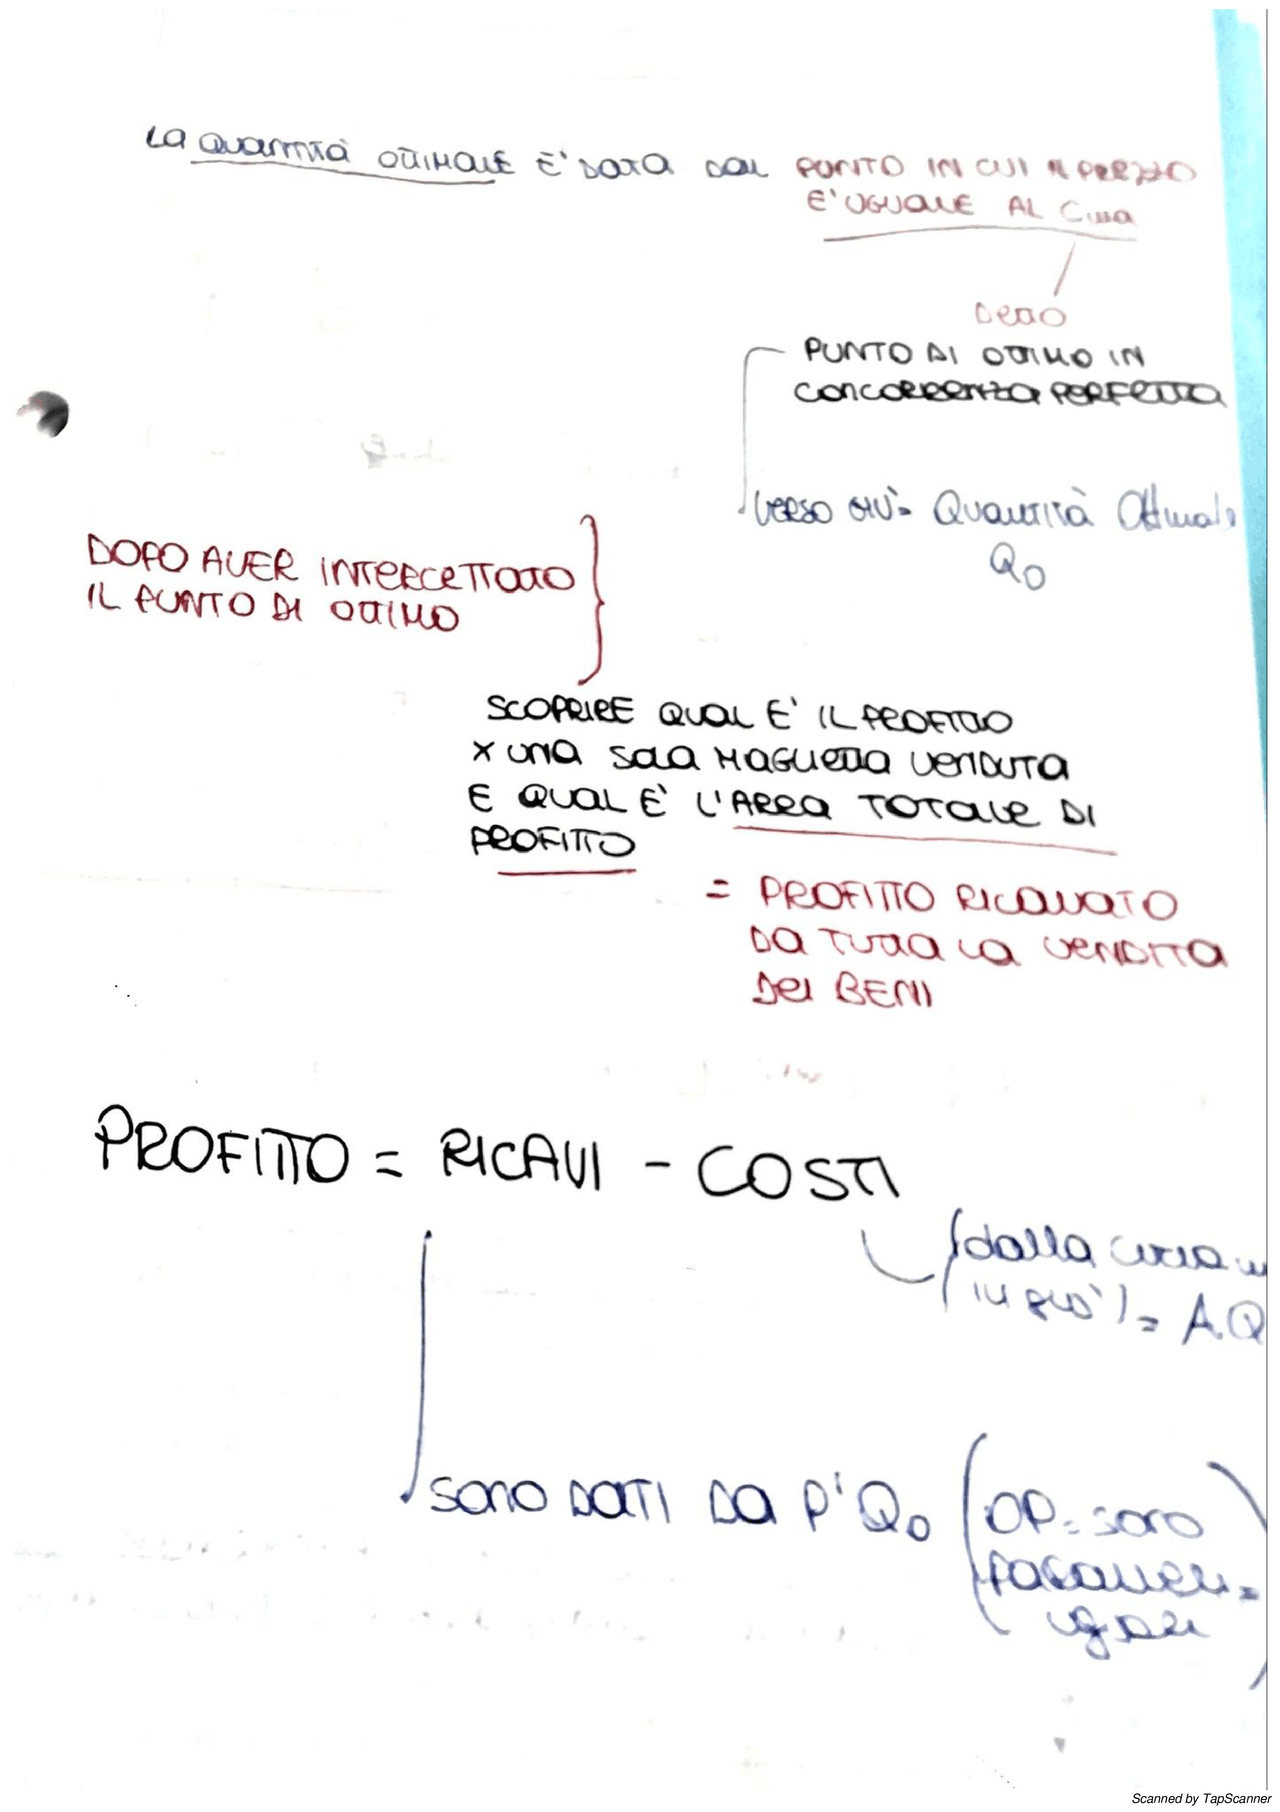 La QUANTITÀ OTTIMALE E' DATA DAL PUNTO IN CUI IL PREZZO
E' UGUALE AL Cma
DETTO
PUNTO DI OTTIMO IN
CONCORRENZA PERFETTA
VERSO GIÙ = Quantità Ottimale
Qo
DOPO AVER INTERCETTATO
IL PUNTO DI OTTIMO
SCOPRIRE QUAL E' IL PROFITTO
X UNA SOLA MAGLIETTA VENDUTA
E QUAL E' L'AREA TOTALE DI
PROFITTO
= PROFITTO RICAVATO
DA TUTTA LA VENDITA
DEI BENI
PROFITTO = RICAVI - COSTI
(dalla curva
in giù) = A.Q
SONO DATI DA P' Qo (OP = sono
)
Scanned by TapScanner